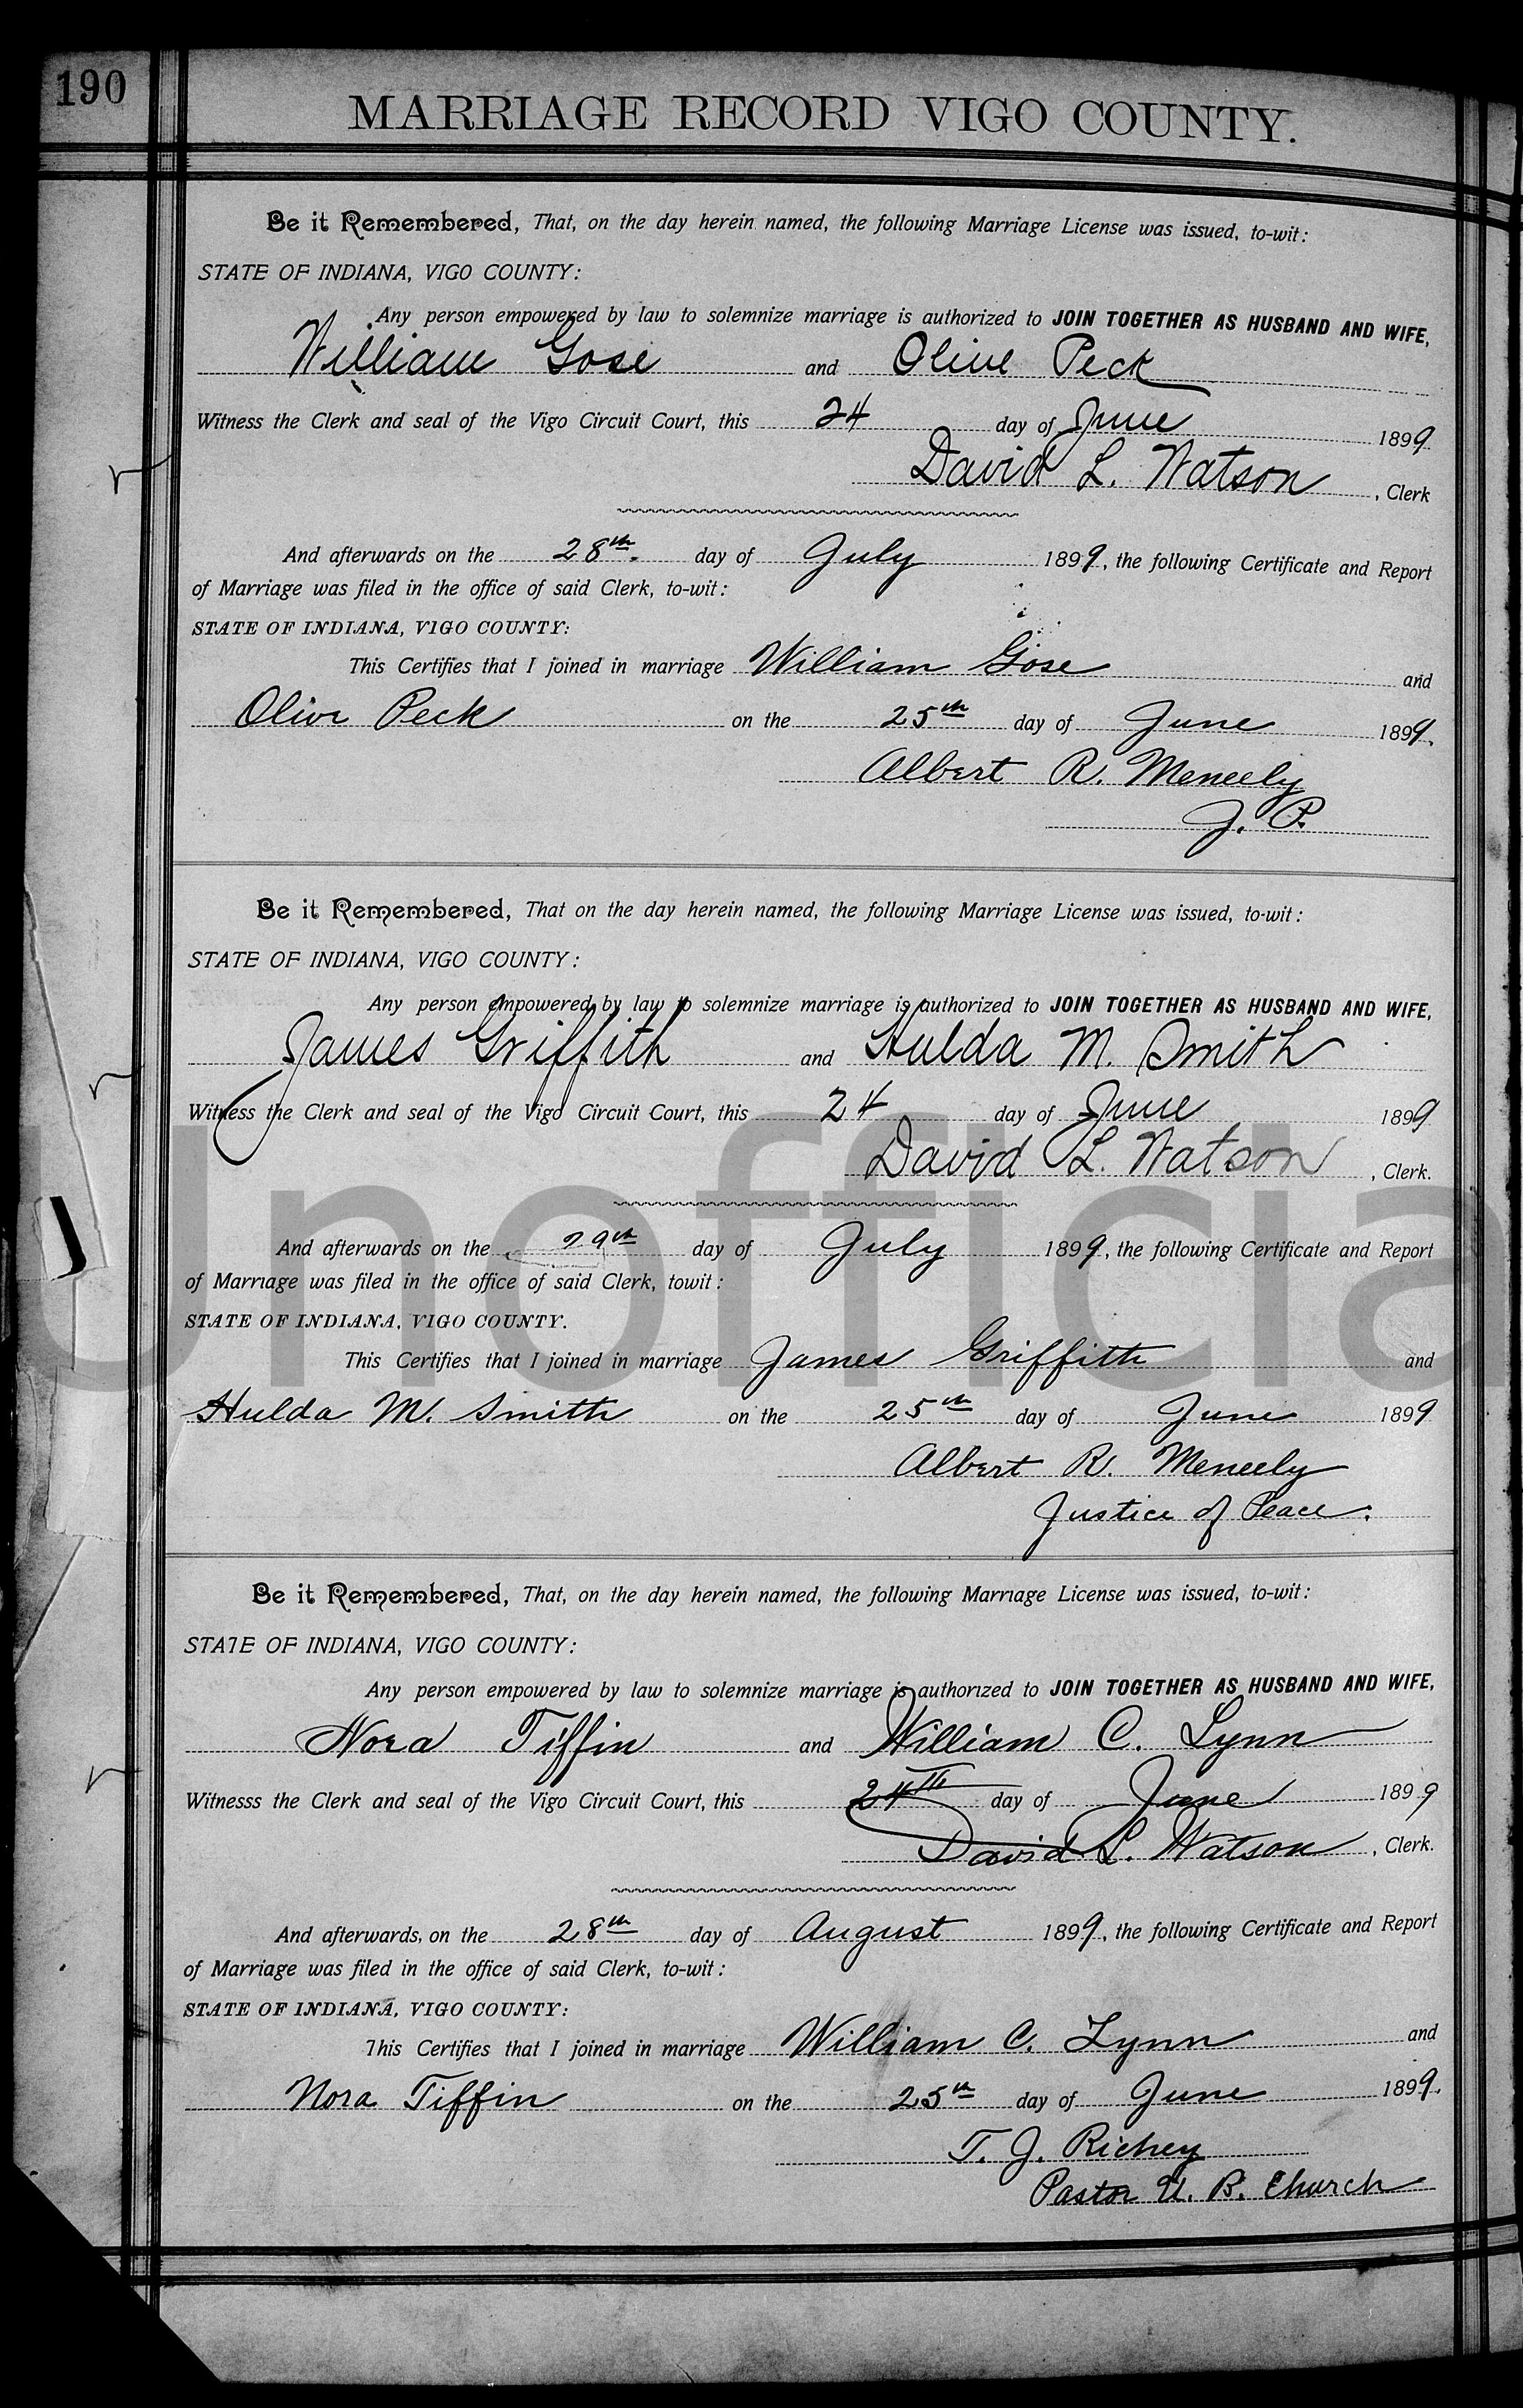 190
MARRIAGE RECORD VIGO COUNTY.
Be it Remembered, That, on the day herein named, the following Marriage License was issued, to-wit:
STATE OF INDIANA, VIGO COUNTY:
Any person empowered by law to solemnize marriage is authorized to JOIN TOGETHER AS HUSBAND AND WIFE,
William Gose and Olive Peck
Witness the Clerk and seal of the Vigo Circuit Court, this 24 day of June 1899
David L. Watson, Clerk
And afterwards on the 28th. day of July 1899, the following Certificate and Report
of Marriage was filed in the office of said Clerk, to-wit:
STATE OF INDIANA, VIGO COUNTY:
This Certifies that I joined in marriage William Gose and
Olive Peck on the 25th day of June 1899.
Albert R. Meneely
J. P.
Be it Remembered, That on the day herein named, the following Marriage License was issued, to-wit:
STATE OF INDIANA, VIGO COUNTY:
Any person empowered by law to solemnize marriage is authorized to JOIN TOGETHER AS HUSBAND AND WIFE,
James Griffith and Hulda M. Smith
Witness the Clerk and seal of the Vigo Circuit Court, this 24 day of June 1899
David L. Watson, Clerk.
And afterwards on the 29th day of July 1899, the following Certificate and Report
of Marriage was filed in the office of said Clerk, towit:
STATE OF INDIANA, VIGO COUNTY.
This Certifies that I joined in marriage James Griffith and
Hulda M. Smith on the 25th day of June 1899
Albert R. Meneely
Justice of Peace.
Be it Remembered, That, on the day herein named, the following Marriage License was issued, to-wit:
STATE OF INDIANA, VIGO COUNTY:
Any person empowered by law to solemnize marriage is authorized to JOIN TOGETHER AS HUSBAND AND WIFE,
Nora Tiffin and William C. Lynn
Witnesss the Clerk and seal of the Vigo Circuit Court, this 24th day of June 1899
David L. Watson, Clerk.
And afterwards, on the 28th day of August 1899, the following Certificate and Report
of Marriage was filed in the office of said Clerk, to-wit:
STATE OF INDIANA, VIGO COUNTY:
This Certifies that I joined in marriage William C. Lynn and
Nora Tiffin on the 25th day of June 1899.
T. J. Richey
Pastor U. B. Church
Unofficia